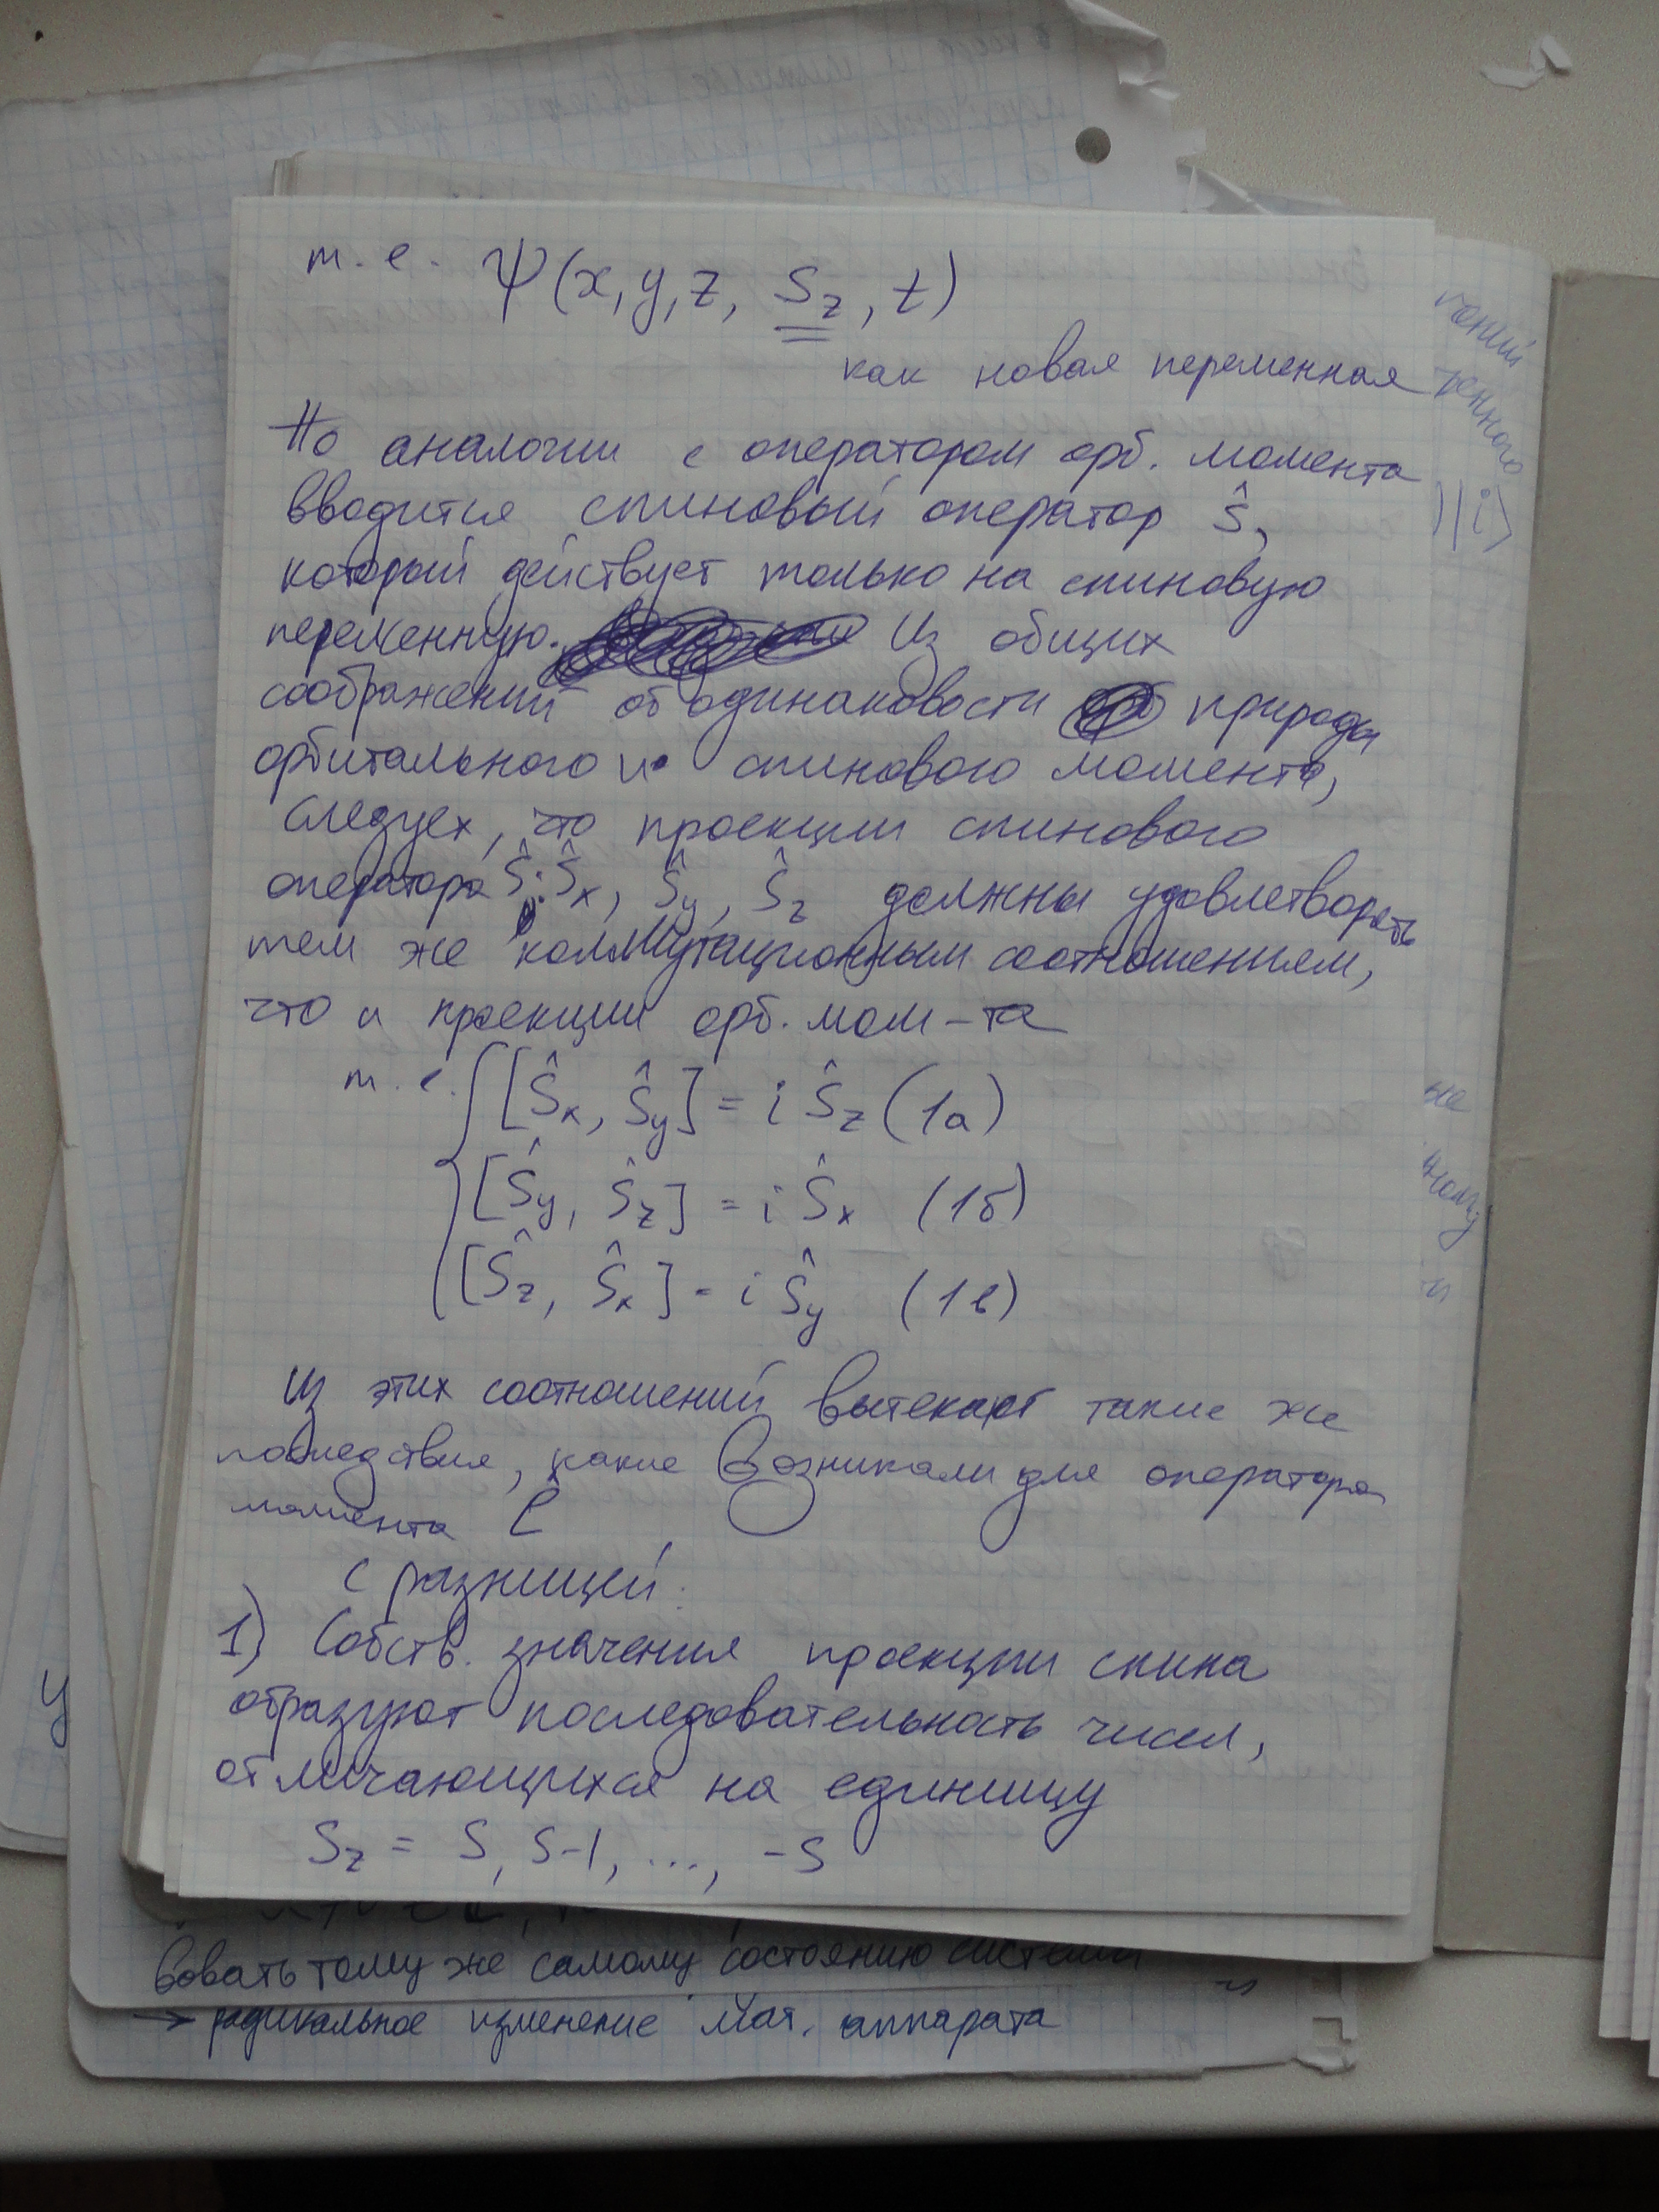 т.е. Ψ(x, y, z, S_z, t)
как новая переменная
По аналогии с оператором орб. момента
вводится спиновый оператор ŝ,
который действует только на спиновую
переменную. Из общих
соображений об одинаковости природы
орбитального и спинового момента,
следует, что проекции спинового
оператора Ŝ: Ŝ_x, Ŝ_y, Ŝ_z должны удовлетворять
тем же коммутационным соотношениям,
что и проекции орб. мом-та
т.е. [Ŝ_x, Ŝ_y] = i Ŝ_z (1а)
[Ŝ_y, Ŝ_z] = i Ŝ_x (1б)
[Ŝ_z, Ŝ_x] = i Ŝ_y (1в)
Из этих соотношений вытекают такие же
последствия, какие возникали для оператора
момента
с разницей:
1) Собств. значения проекции спина
образуют последовательность чисел,
отличающихся на единицу
S_z = S, S-1, ..., -S
вовать тому же самому состоянию системы
→ радикальное изменение мат. аппарата
чений
ренного
)|i⟩
не
ному
и
у